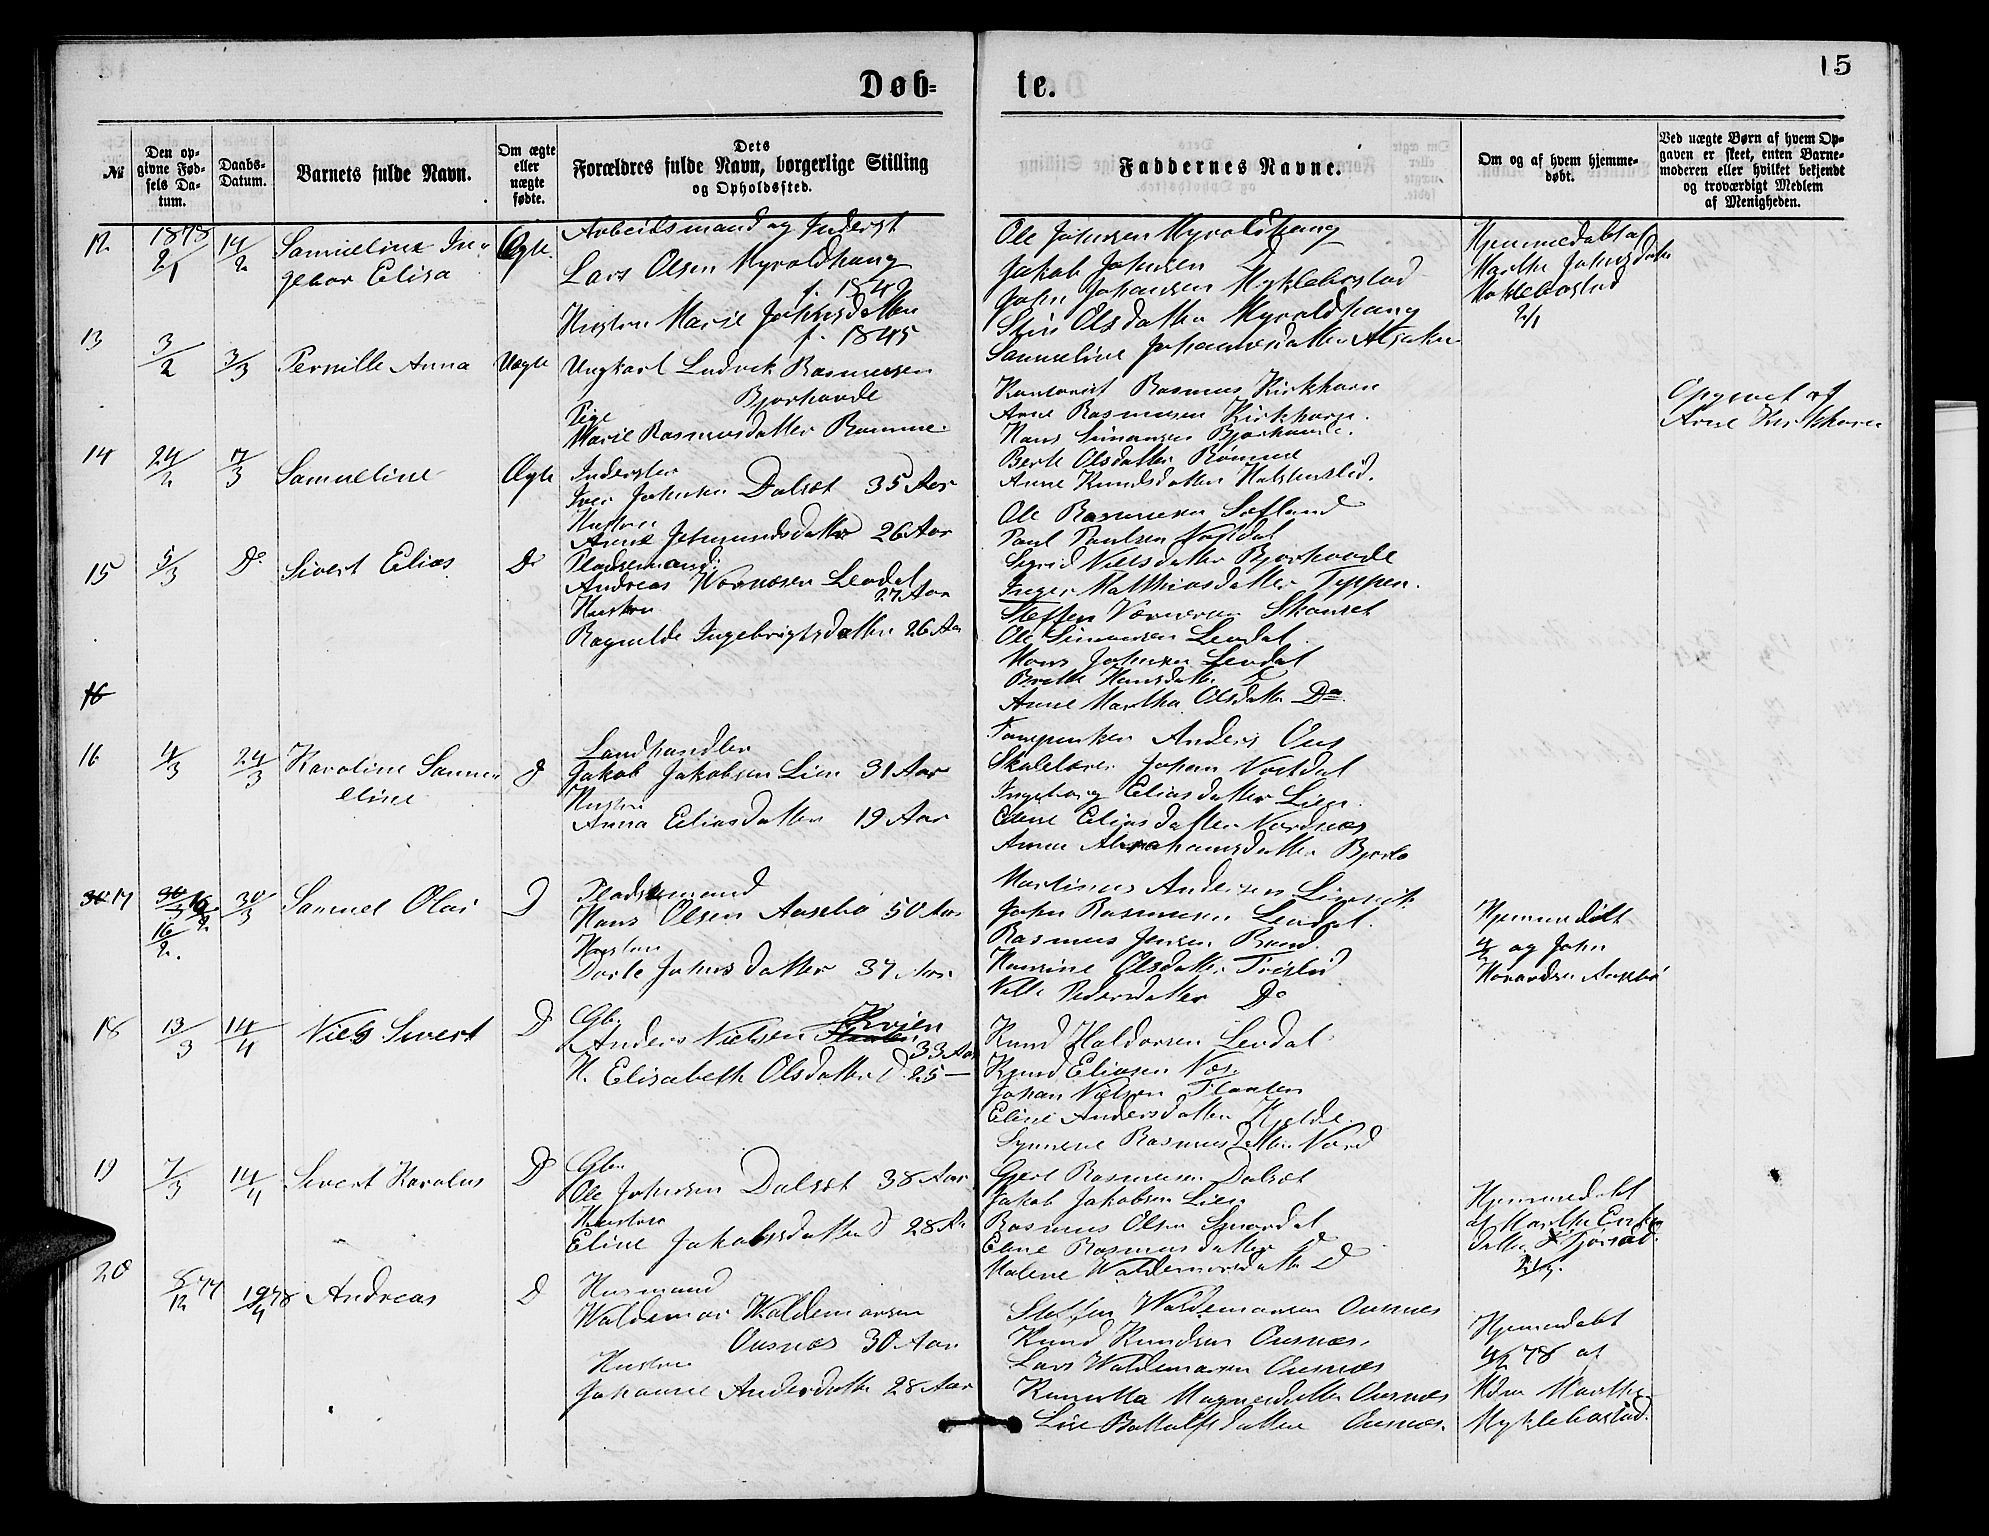 15
Døb-
te.
№
Den op-
givne Fød-
sels Da-
tum.
Daabs-
Datum.
Barnets fulde Navn.
Om ægte
eller
uægte
fødte.
Dets
Forældres fulde Navn, borgerlige Stilling
og Opholdssted.
Faddernes Navne.
Om og af hvem hjemme-
døbt.
Ved uægte Børn af hvem Op-
gaven er skeet, enten Barne-
moderen eller hvilket bekjendt
og troværdigt Medlem
af Menigheden.
12
1878
2/1
14/2
Samueline In-
gebor Elisa
Ægte.
Arbeidsmand og Inderst
Lars Olsen Myroldhaug
f. 1842
Hustru Marie Johnsdatter
f. 1845
Ole Johnsen Myroldhaug
Jakob Johnsen D
John Johansen Myklebostad
Stine Olsdatter Myroldhaug
Samueline Johannesdatter
Hjemmedøbt af
Marthe Johnsdatter
Myklebostad
2/1
13
3/2
3/3
Pernille Anna
Uægte
Ungkarl Ludvik Rasmussen
Bjørhovde
Pige
Marie Rasmusdatter Romme
Rasmus Kirkhorn
Arne Rasmussen Kirkhorn.
Hans Simonsen Bjørhovde.
Berte Olsdatter Romme
Anne Knudsdatter
Opgivet af
Arne Kirkhorn
14
24/2
17/3
Samueline
Ægte
Inderster
Iver Johnsen Dalset 35 Aar
Hustru
Anne Johnundsdatter 26 Aar
Ole Rasmussen Sefland
Paul Paulsen Nordal
Sigrid Nielsdatter Bjørhovde
Inger Matthiasdatter Fyppen.
15
5/3
Do
Sivert Elias
Do
Pladsemand:
Andreas Værnesen Levdal
27 Aar
Hustru
Ragnilde Ingebrigtsdatter 26 Aar
Steffen Værnesen Skouset
Ole Simonsen Levdal.
Hans Johnsen Levdal
Brithe Hansdatter D
Anne Martha Olsdatter Do
16
16
4/3
24/3
Karoline Samu-
eline
D
Landhandler
Jakob Jakobsen Lien 31 Aar
Hustru
Anna Eliasdatter 19 Aar
Anders Aus
Skolelærer Johan Nordal
Ingeborg Eliasdatter Lien.
Oline Eliasdatter Nordnes
Anne Abrahamsdatter Bjorlo
30 17
16/2.
30/3
Samuel Olai
D
Pladsemand
Hans Olsen Aasebø 50 Aar
Hustru
Dorte Johnsdatter 37 Aar
Martinus Andersen Linvik
John Rasmussen Levdal.
Rasmus Jensen Rand.
Hansine Olsdatter Fristid
Nille Pedersdatter Do
Hjemmedøbt
af John
Havardsen Aasebø
18
13/3
14/4
Niels Sivert
D
Gbr.
Anders Nielsen Flaaten Kvien
33 Aar
H. Elisabeth Olsdatter D. 25 —
Knud Haldorsen Levdal.
Knud Eliasen Næs.
Johan Nielsen Flaaten
Eline Andersdatter Hjelde
Synneve Rasmusdatter Nord
19
7/3
14/4
Sivert Karolus
D
Gbr.
Ole Johnsen Dalset 38 Aar
Hustru
Eline Jakobsdatter D 28 Aar
Gjert Rasmussen Dalset
Jakob Jakobsen Lien
Rasmus Olsen Smordal
Elene Rasmusdatter D
Malene Waldemarsdatter D
Hjemmedøbt
af Marthe
datter
20
8/12 77
19/4 78
Andreas
D
Husmand
Waldemar Waldemarsen
Ousnæs 30 Aar
Hustru
Johanne Andersdatter 28 Aar
Steffen Waldemarsen Ousnæs
Knud Knudsen Ousnæs.
Lars Waldemarsen Ousnæs
Magnesdatter Ousnæs
Line Battolfsdatter Ousnæs.
Hjemmedøbt
78 af
Marthe
Myklebostad.